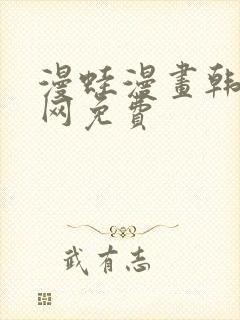 漫蛙漫畫韩
网免費
武有志